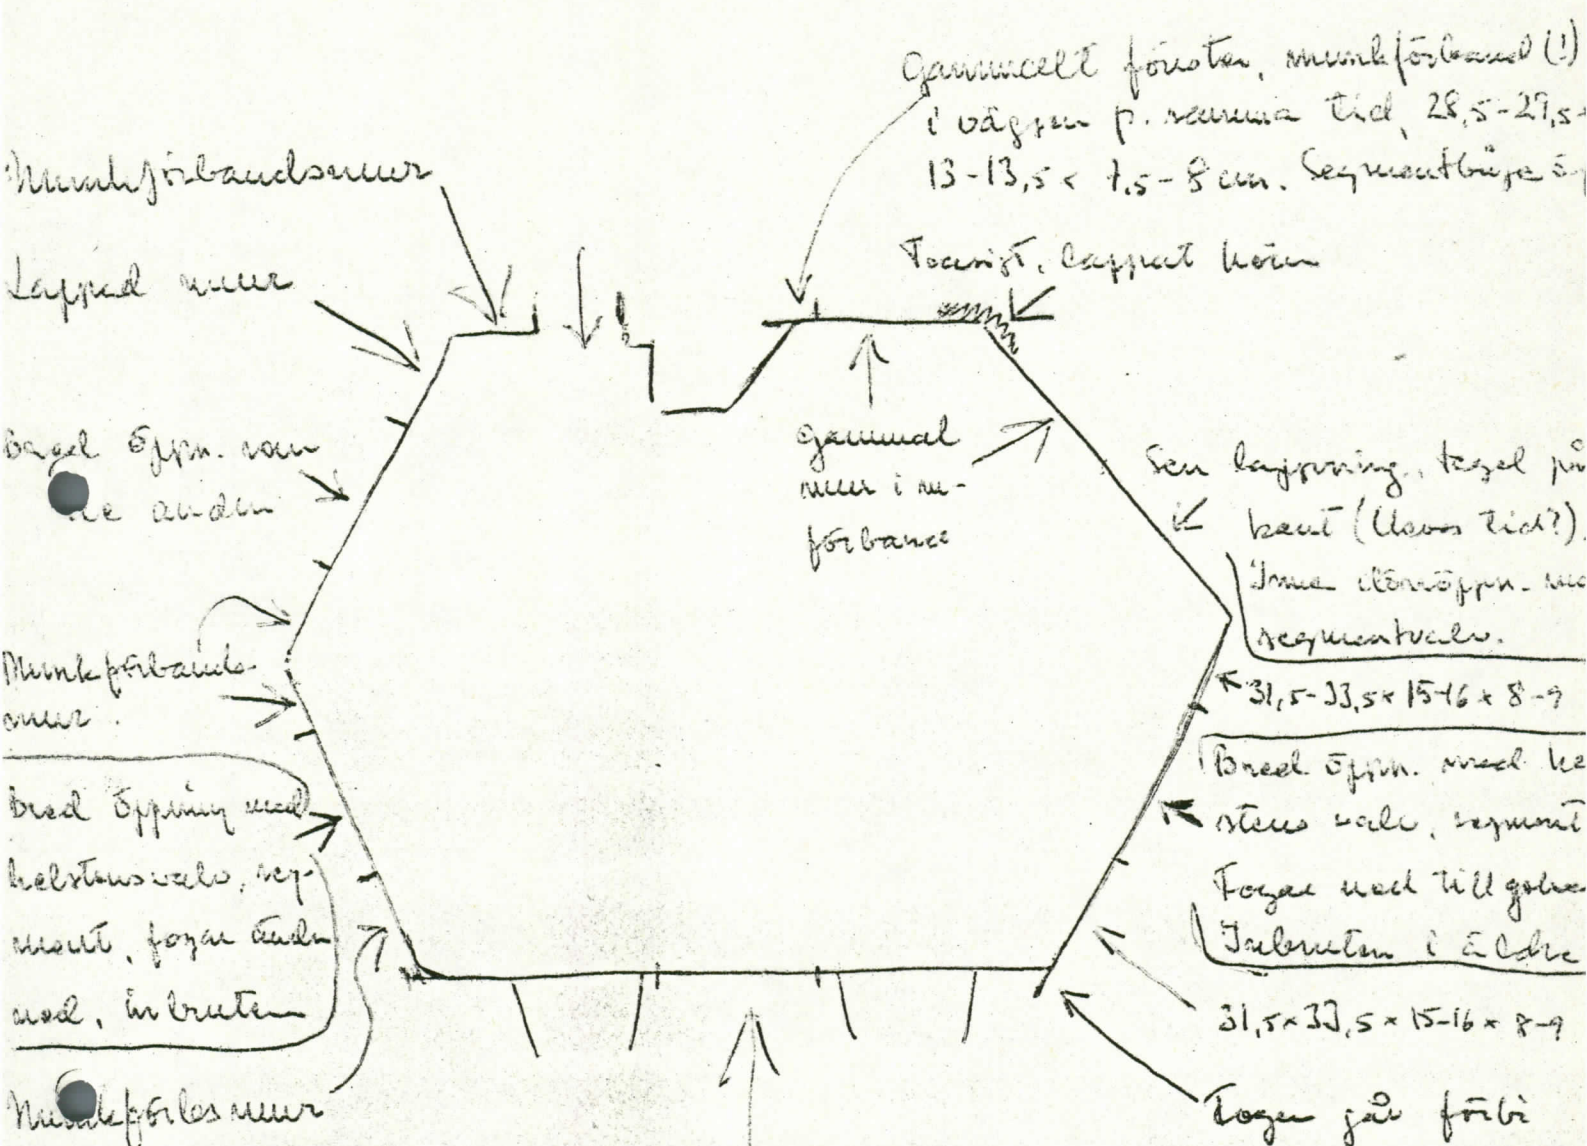 Gammalt fönster, munkförband (!)
i väggen p. samma tid, 28,5-29,5
13-13,5 x 7,5-8 cm. Segmentbåge
Munkförbandsmur
Lappad mur
lappat hörn
öppn.
gammal
mur i m-
förband
Sen lappning, tegel på
kant (Vasas tid?).
Inre dörröppn.
segmentvalv.
31,5-33,5 x 15-16 x 8-9
Munkförbands-
mur.
Bred öppning med
helstensvalv, seg-
ment, fogar ända
ned, inbruten
Bred öppn. med
stens valv, segment
Fogar ned till
Inbruten i äldre
31,5 x 33,5 x 15-16 x 8-9
mur
Fogen går förbi